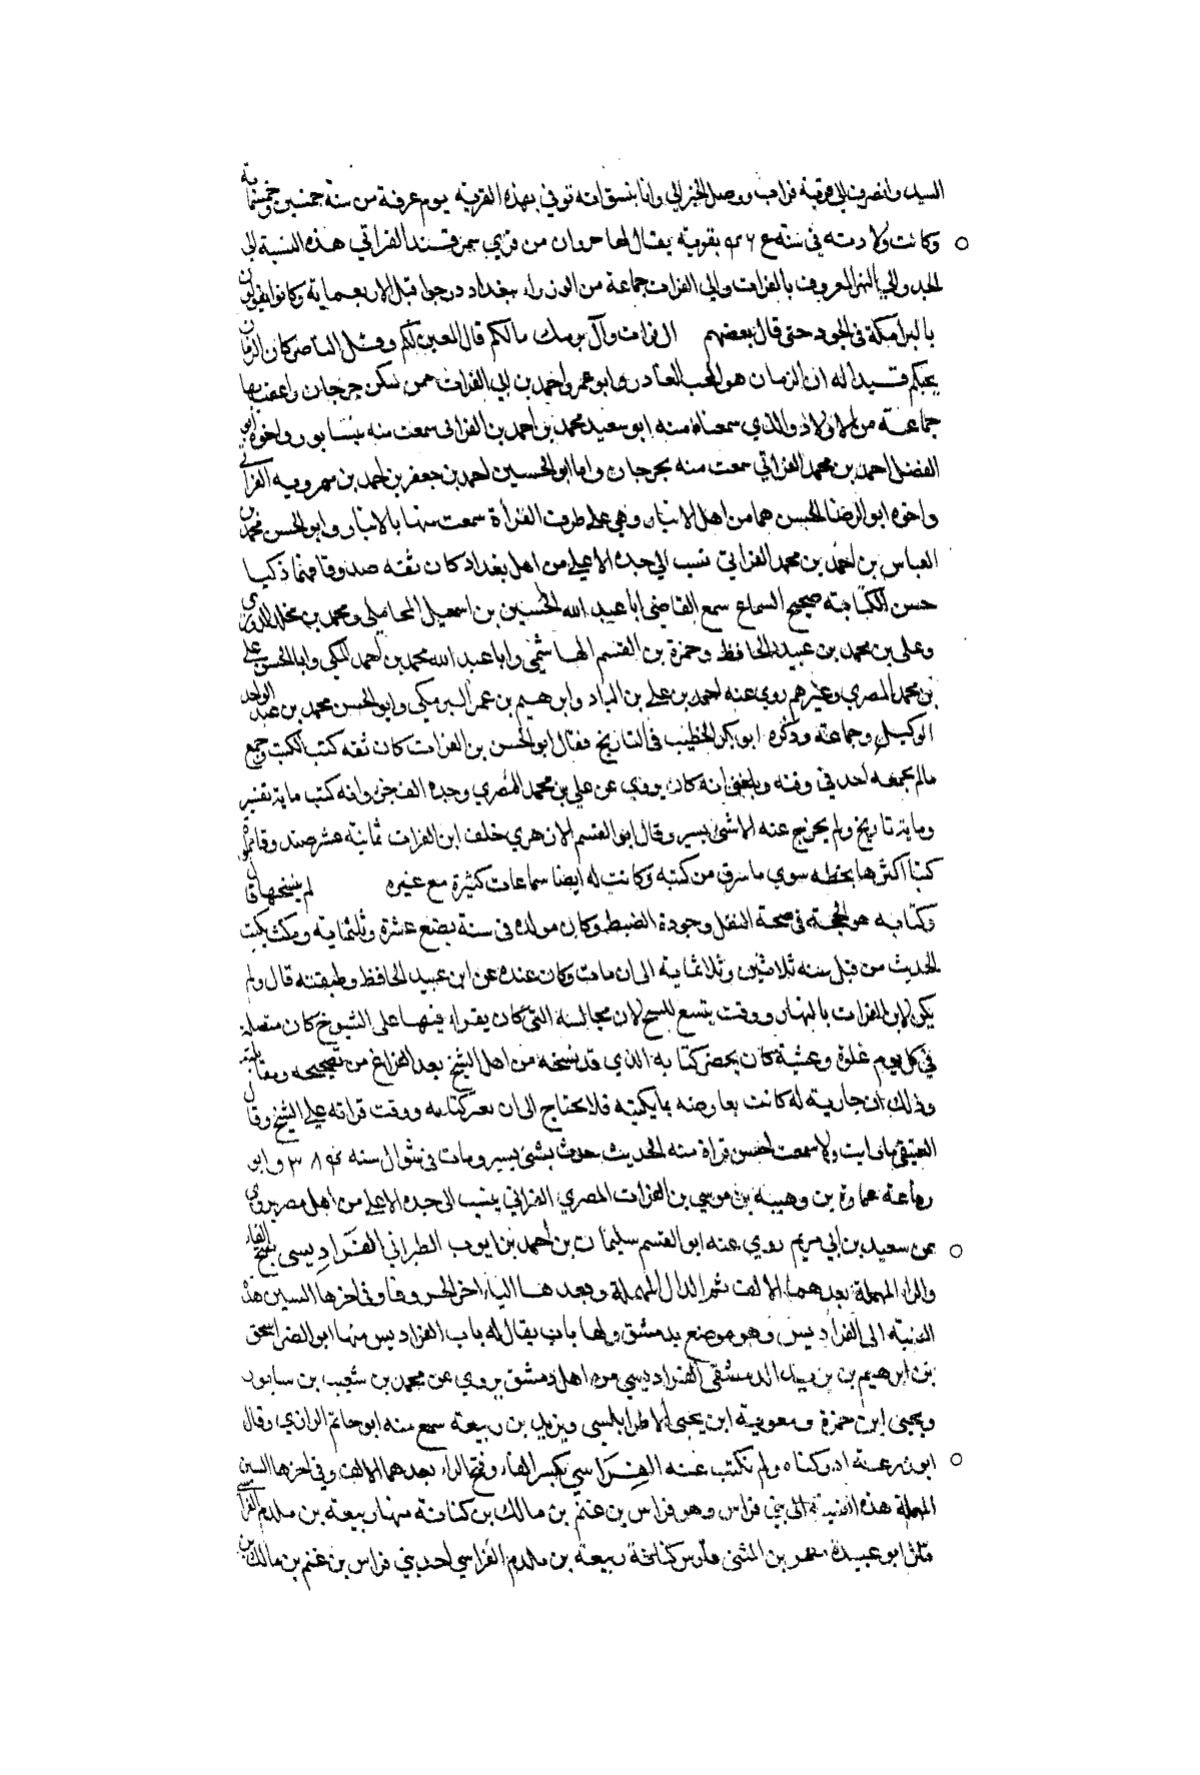 السيد وانصرف الى قرية فراب ووصل الخبر الي وانا بنسف انه توفي بهذه القرية يوم عرفة من سنة خمسين وخمسماية
وكانت ولادته في سنة بقرية يقال لها من قري سمرقند الفراتي هذه النسبة الى
الجد والي النهر المعروف بالفرات والي الفرات جماعة من الوزراء ببغداد درجوا قبل الاربعماية وكانوا
بالبرامكة في الجود حتى قال بعضهم ال فرات وآل برمك مالكم قال المعين لكم وقل الناصر كان الزمان
يحبكم فبدا له ان الزمان هو المحب الغادر وابو عمرو احمد بن ابي الفرات ممن سكن جرجان واعقب بها
جماعة من الاولاد والذي سمعناه منه ابو سعيد محمد بن احمد بن الفراتي سمعت منه بنيسابور واخوه ابو
الفضل احمد بن محمد الفراتي سمعت منه بجرجان واما ابو الحسين احمد بن جعفر بن احمد بن مهرويه الفراتي
واخوه ابو الرضا الحسن هما من اهل الانبار وهي على طرف الفرأة سمعت منهما بالانبار وابو الحسن محمد بن
العباس بن احمد بن محمد الفراتي نسب الي جده الاعلى من اهل بغداد كان ثقة صدوقا فهما ذكيا
حسن الكتابة صحيح السماع سمع القاضي ابا عبد الله الحسين بن اسمعيل المحاملي ومحمد بن مخلد الدوري
وعلى بن محمد بن عبيد الحافظ وحمزة بن القسم الهاشمي وابا عبد الله محمد بن احمد المكي وابا الحسن علي
بن محمد المصري وغيرهم روى عنه احمد بن علي بن الباد وابرهيم بن عمر البرمكي وابو الحسن محمد بن عبد الواحد
الوكيل وجماعة وذكره ابو بكر الخطيب في التاريخ فقال ابو الحسن بن الفرات كان ثقة كتب الكتب وجمع
مالم يجمعه احد في وقته وبلغني انه كان يروي عن علي بن محمد المصري وحده الف جزء وانه كتب ماية تفسير
وماية تاريخ ولم يخرج عنه الا شئ يسير وقال ابو القسم الازهري خلف ابن الفرات ثمانية عشر صندوقا مملوة
كتبا اكثرها بخطه سوي ما سرق من كتبه وكانت له ايضا سماعات كثيرة مع غيره لم ينسخها قال
وكتابه هو الحجة في صحة النقل وجودة الضبط وكان مولده في سنة بضع عشرة وثلثماية ومكث يكتب
الحديث من قبل سنه ثلاثين وثلاثماية الى ان مات وكان عنده عن ابن عبيد الحافظ وطبقته قال ولم
يكن لابن الفرات بالنهار ووقت يتسع للنسخ لان مجالسه التي كان يقراء فيها على الشيوخ كان متصلة
في كل يوم غدوة وعشية كان يحضر كتابه الذي قد نسخه من اصل الشيخ بعد الفراغ من تصحيحه ومقابلته
وذلك ان جارية له كانت تعارضه بما يكتبه فلا يحتاج الى ان يغير كتابه ووقت قراته على الشيخ وقال
العتيقي ما رايت ولا سمعت احسن قراة منه للحديث حدث بشئ يسير ومات في شوال سنه ٣٨٤ وابو
رفاعة عمارة بن وهيبة بن موسي بن الفرات المصري الفراتي ينسب الى جده الاعلى من اهل مصر يروي
عن سعيد بن ابي مريم روي عنه ابو القسم سليمان بن احمد بن ايوب الطبراني الفراديسي بفتح الفاء
والراء المهملة بعدهما الالف ثم الدال المهملة وبعدها الياء اخر الحروف وفي اخرها السين هذه
النسبة الى الفراديس وهو موضع بدمشق ولها باب يقال له باب الفراديس منها ابو النضر اسحق
بن ابرهيم بن يزيد الدمشقى الفراديسي من اهل دمشق يروي عن محمد بن شعيب بن سابور
ويحيى ابن حمزة ومعوية ابن يحيى الاطرابلسي ويزيد بن ربيعة سمع منه ابو حاتم الرازي وقال
ابو زرعة ادركناه ولم نكتب عنه الفراسي بكسر الفاء وفتح الراء بعدهما الالف وفي اخرها السين
المهملة هذه النسبة الى بني فراس وهو فراس بن غنم بن مالك بن كنانة منها ربيعة بن مكدم الفراسي
قال ابو عبيدة معمر بن المثنى فارس كنانة ربيعة بن مكدم الفراسي احد بني فراس بن غنم بن مالك بن